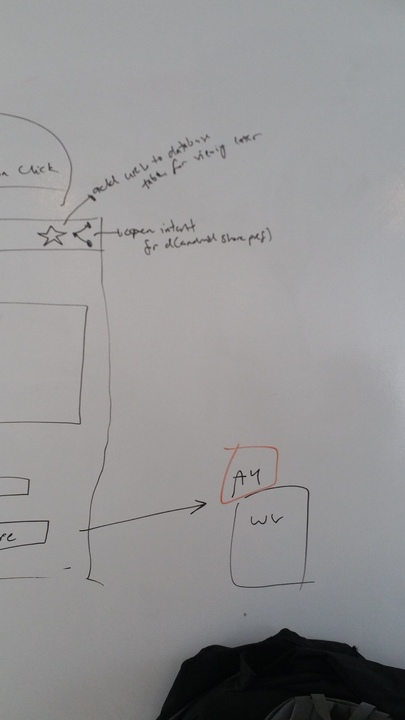 Click
add web to database
table for viewing later
open intent
for (android share pref)
re
A4
WV